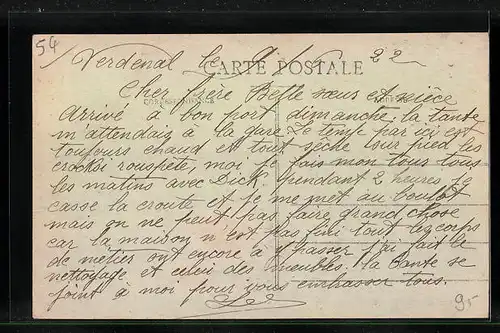 54
Verdenal le 9/6 22
CARTE POSTALE
CORRESPONDANCE
Cher frère Belle sœur et nièce
arrivé a bon port dimanche, la tante
m'attendais a la gare Le temp par ici est
toujours chaud et tout sèche sur pied les
rouspète, moi je fais mon tour tous
les matins avec Dick. pendant 2 heures je
casse la croute et je me met au boulot
mais on ne peut pas faire grand chose
car la maison n'est pas fini tout les corps
de métier ont encore a y passer j'ai fait le
nettoyage et celui des meubles. la tante se
joint à moi pour vous embrasser tous.
95